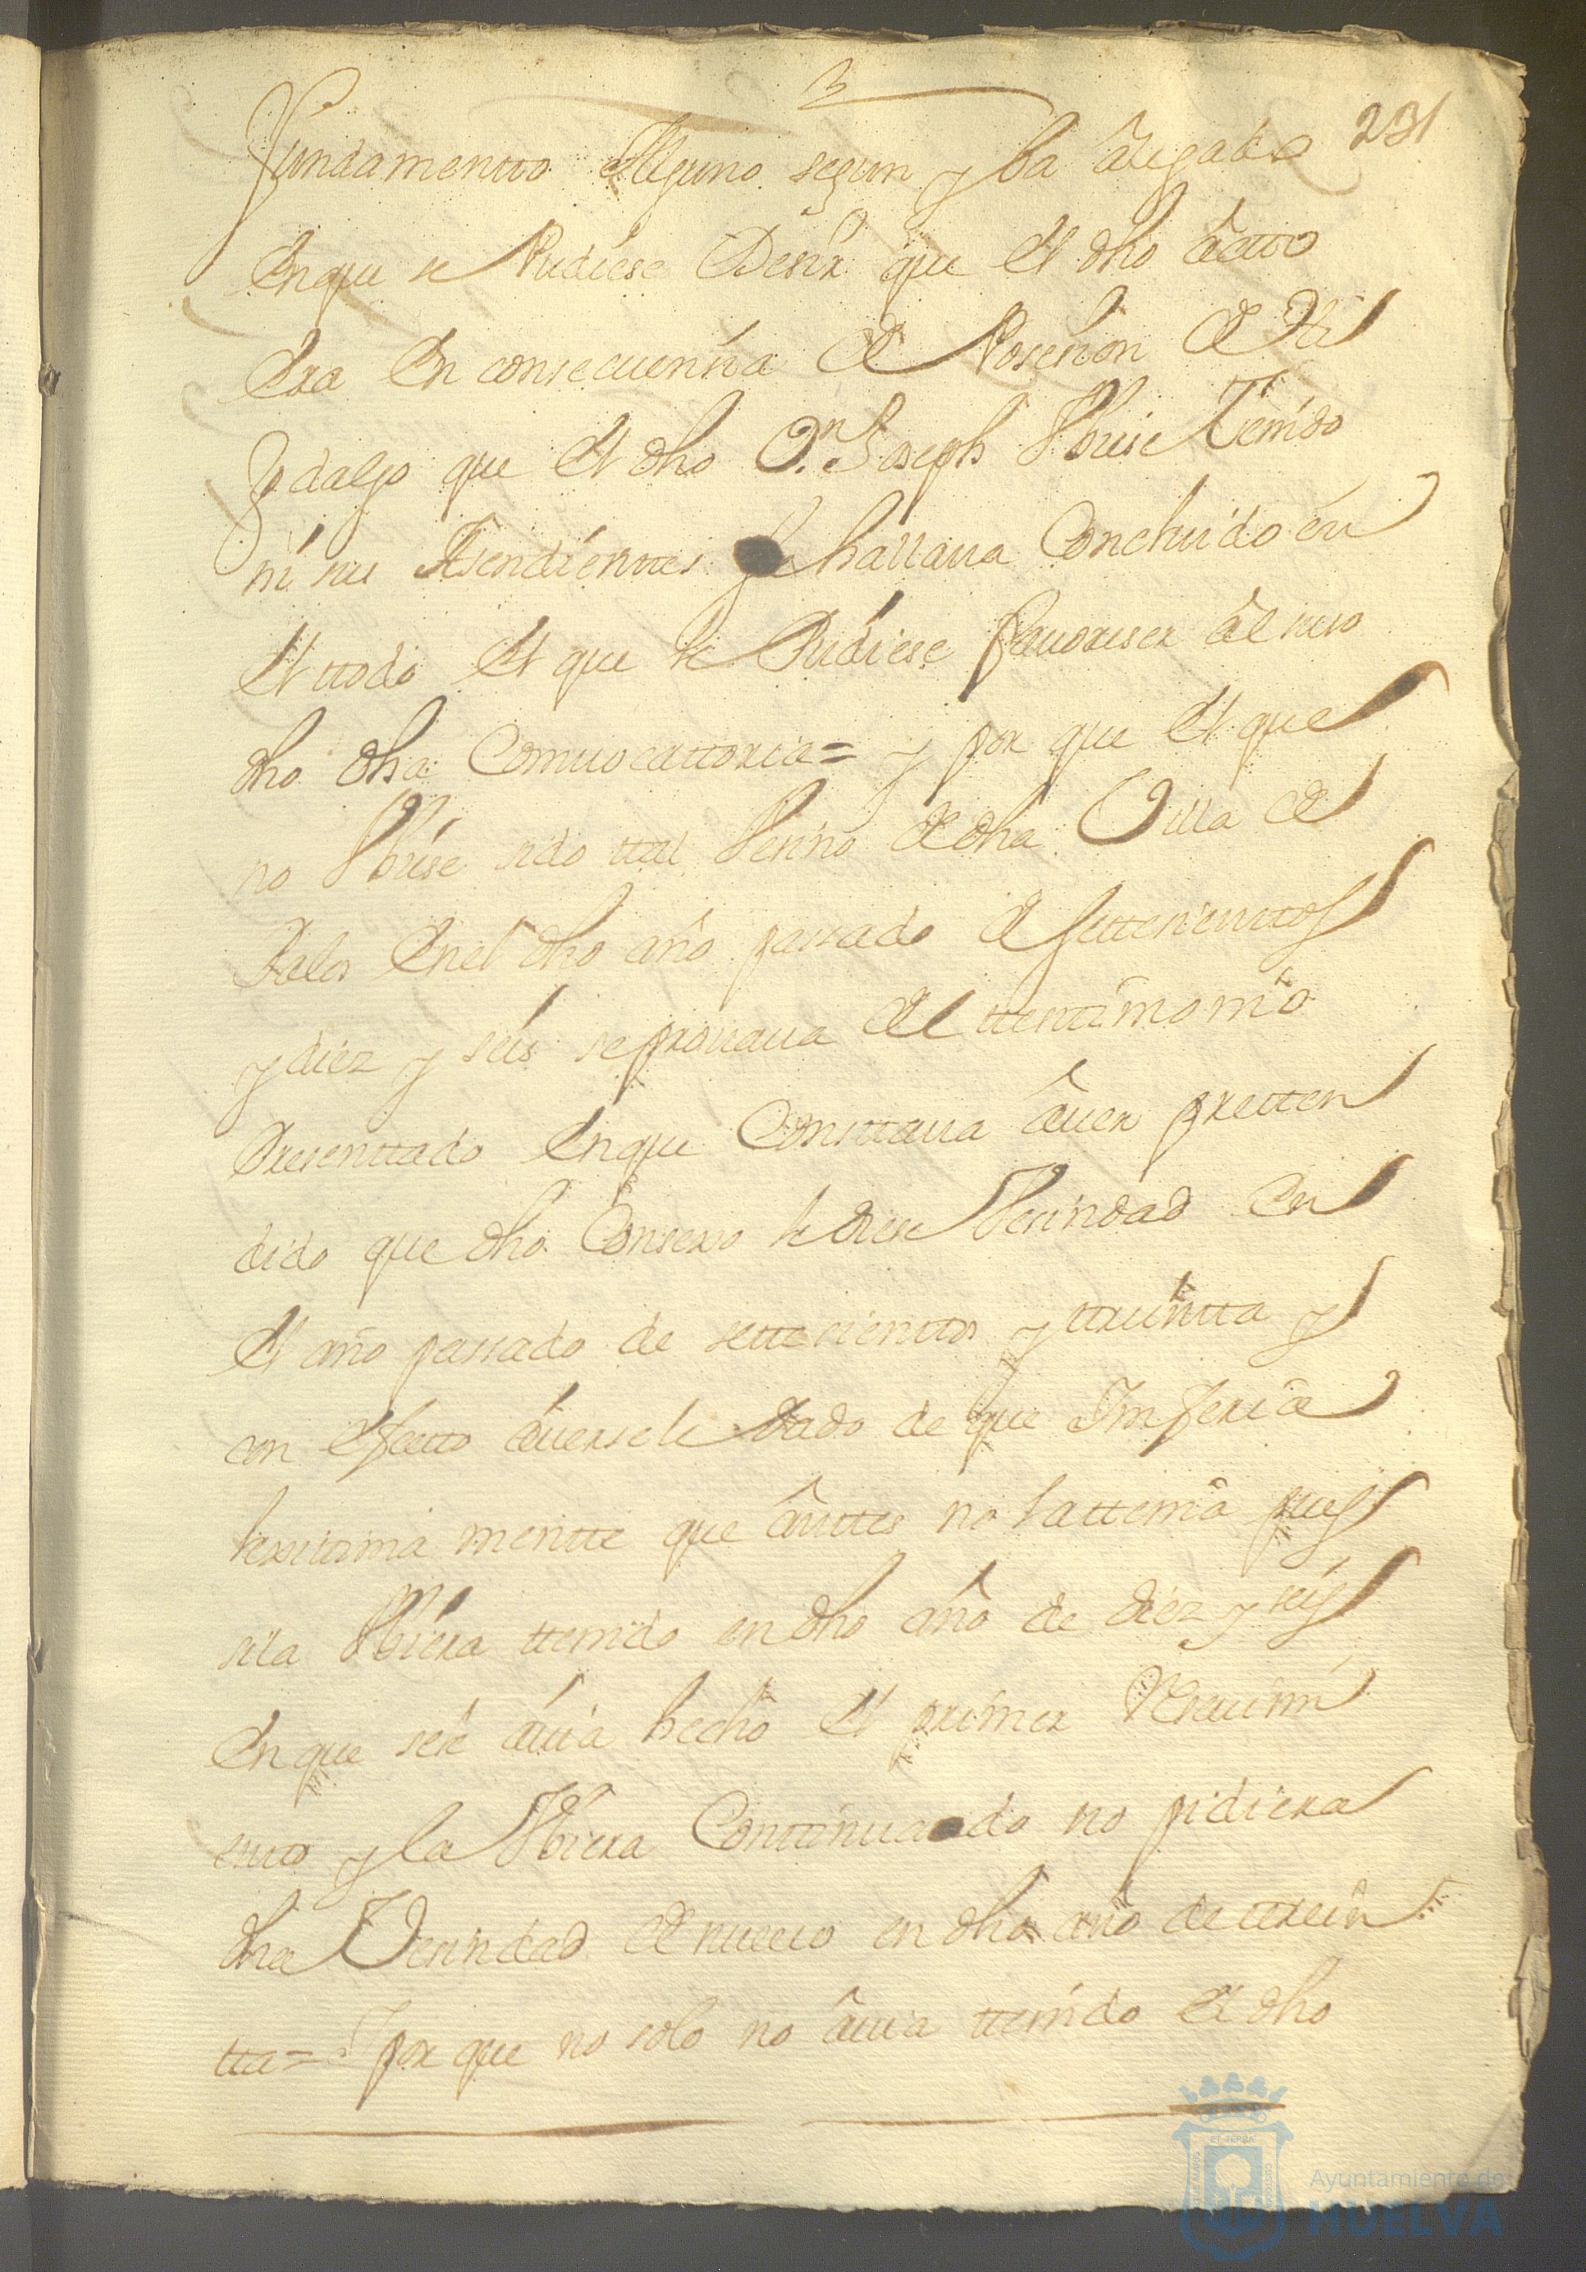 231
fundamentto Alguno segun y ba âlegado
En que se Pudiese Desir que el dho âctto
Era En consecuensia de Posesion de Hi
jodalgo que el dho Dn. Joseph Vbiese Tenido
ni sus Asendienttes se hallaua Concluido en
el ttodo el que le Pudiese fauoreser âl suso
dho dha Comuocattoria = y por que el que
no Vbiese sido ttal Vesino de dha Villa de
Palos En el dho año passado de Settesienttos
y diez y seis se prouaua del ttesttimonio
Presenttado En que Consttaua âuer pretten
dido que dho Consexo le diese Vesindad En
el año passado de settesienttos y ttreintta y
con efectto âuersele dado de que Imferia
lexittima mentte que ânttes no la ttenia pues
si la Vbiera ttenido en dho año de diez y seis
En que se le âuia hecho el primer Resauimi
entto y la Vbiera Conttinuado no pidiera
dha Vesindad de nueuo en dho año de ttrein
tta = Y por que no solo no âuia ttenido el dho
Ayuntamiento de
HUELVA